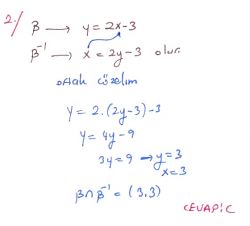 2./ β → y = 2x-3
β⁻¹ → x = 2y-3 olur.
ortak çözelim
y = 2.(2y-3)-3
y = 4y-9
3y = 9 → y = 3
x = 3
β∩β⁻¹ = (3.3)
CEVAP:C